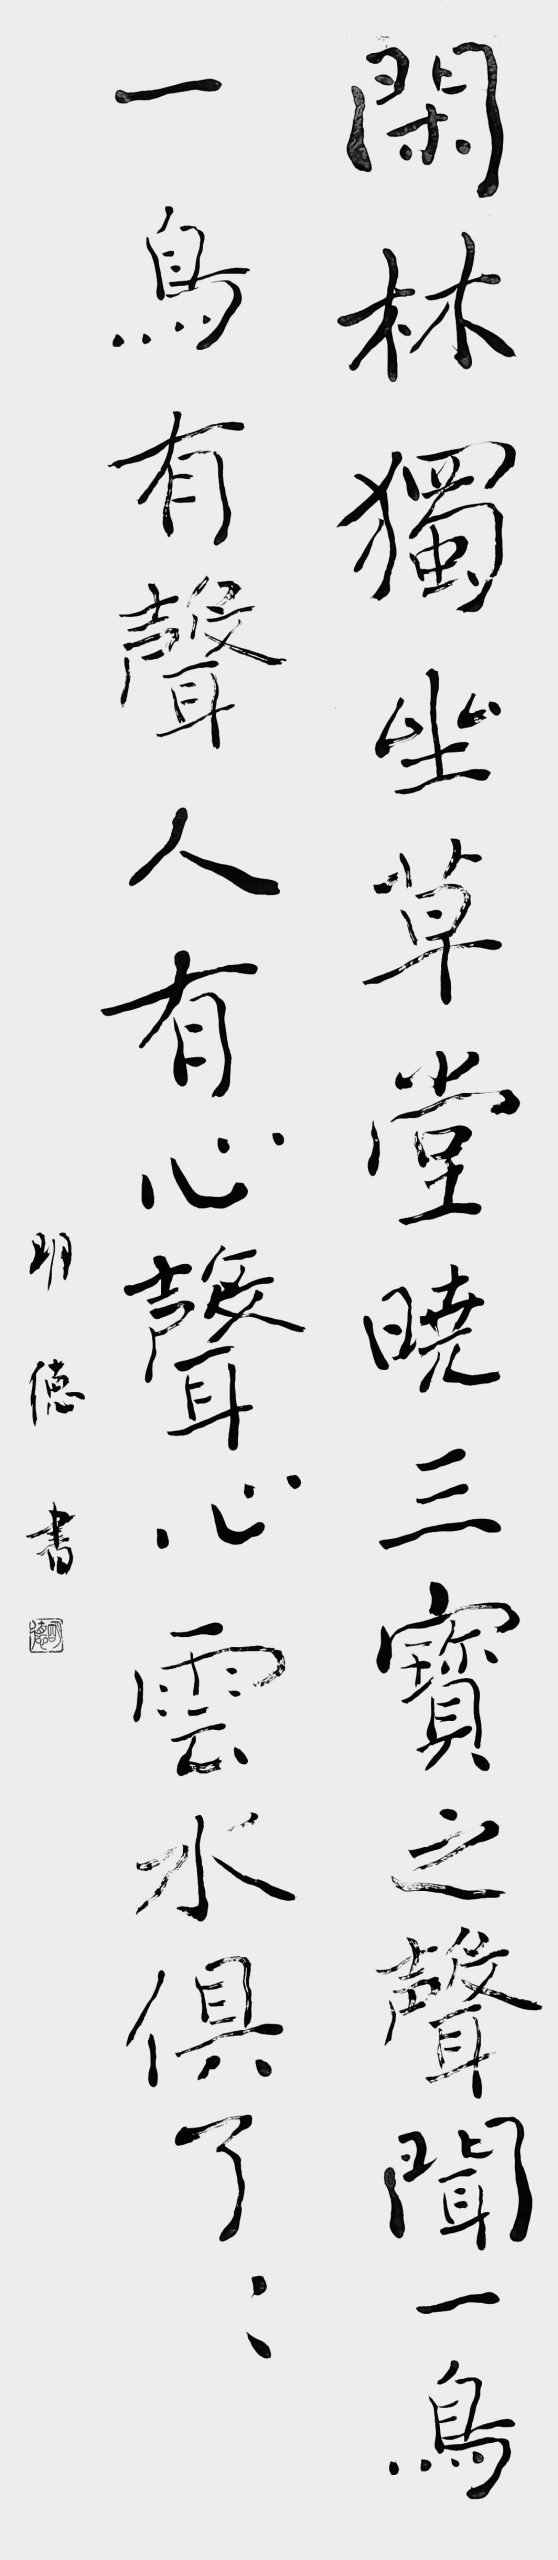 閑林獨坐草堂暁三寶之聲聞一鳥
一鳥有聲人有心聲心雲水俱了〻
明徳書
明徳